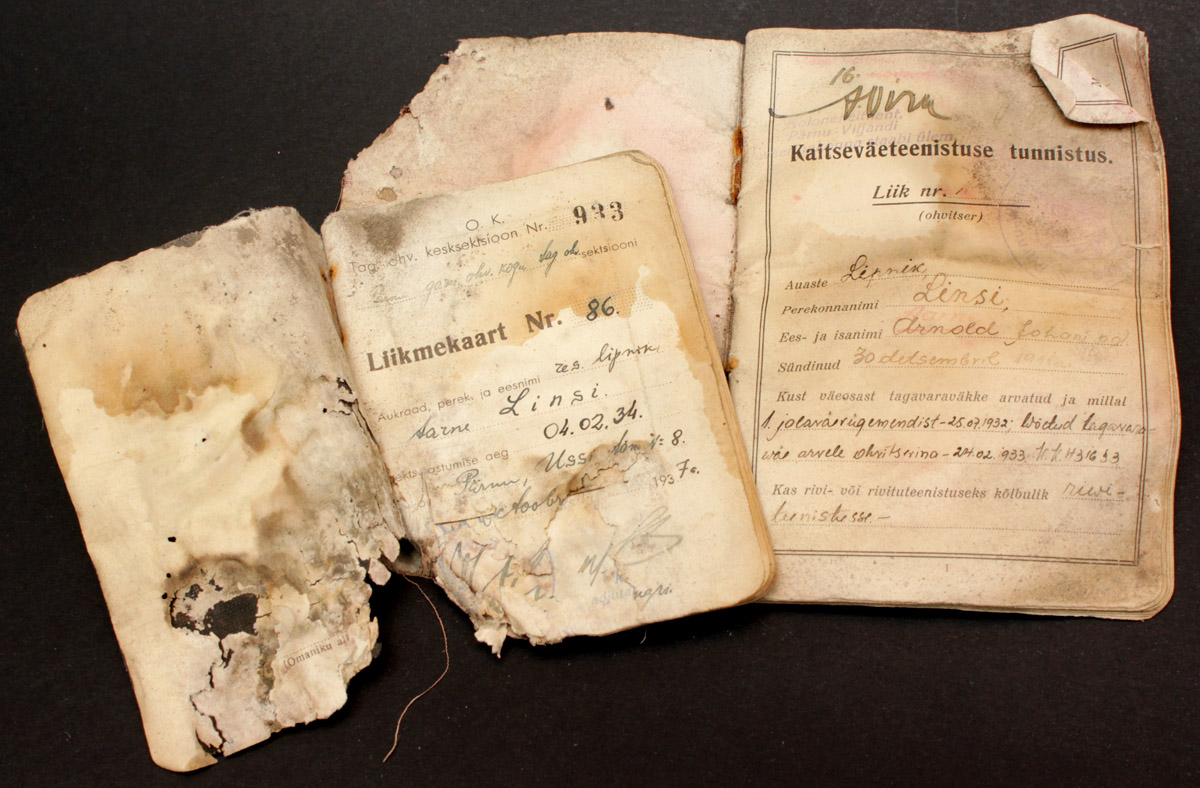 O. K.
Tag. ohv. kesksektsioon Nr. 933
ohv. kogu tag ohv. sektsiooni
Liikmekaart Nr. 86.
Aukraad, perek. ja eesnimi res. lipnik
Linsi.
Aarne
astumise aeg 04.02.34.
Pärnu, Uss 8.
1937 a.
(Omaniku all
16.
Pärnu-Viljandi
Kaitseväeteenistuse tunnistus.
Liik nr.
(ohvitser)
Auaste Lipnik,
Perekonnanimi Linsi,
Ees- ja isanimi Arnold Johani
Sündinud 30 detsembril
Kust väeosast tagavaraväkke arvatud ja millal
1. jalaväerügemendist - 25.07.1932; võetud tagavara-
väe arvele ohvitserina - 24.02.933
Kas rivi- või rivituteenistuseks kõlbulik rivi-
teenistusse. -